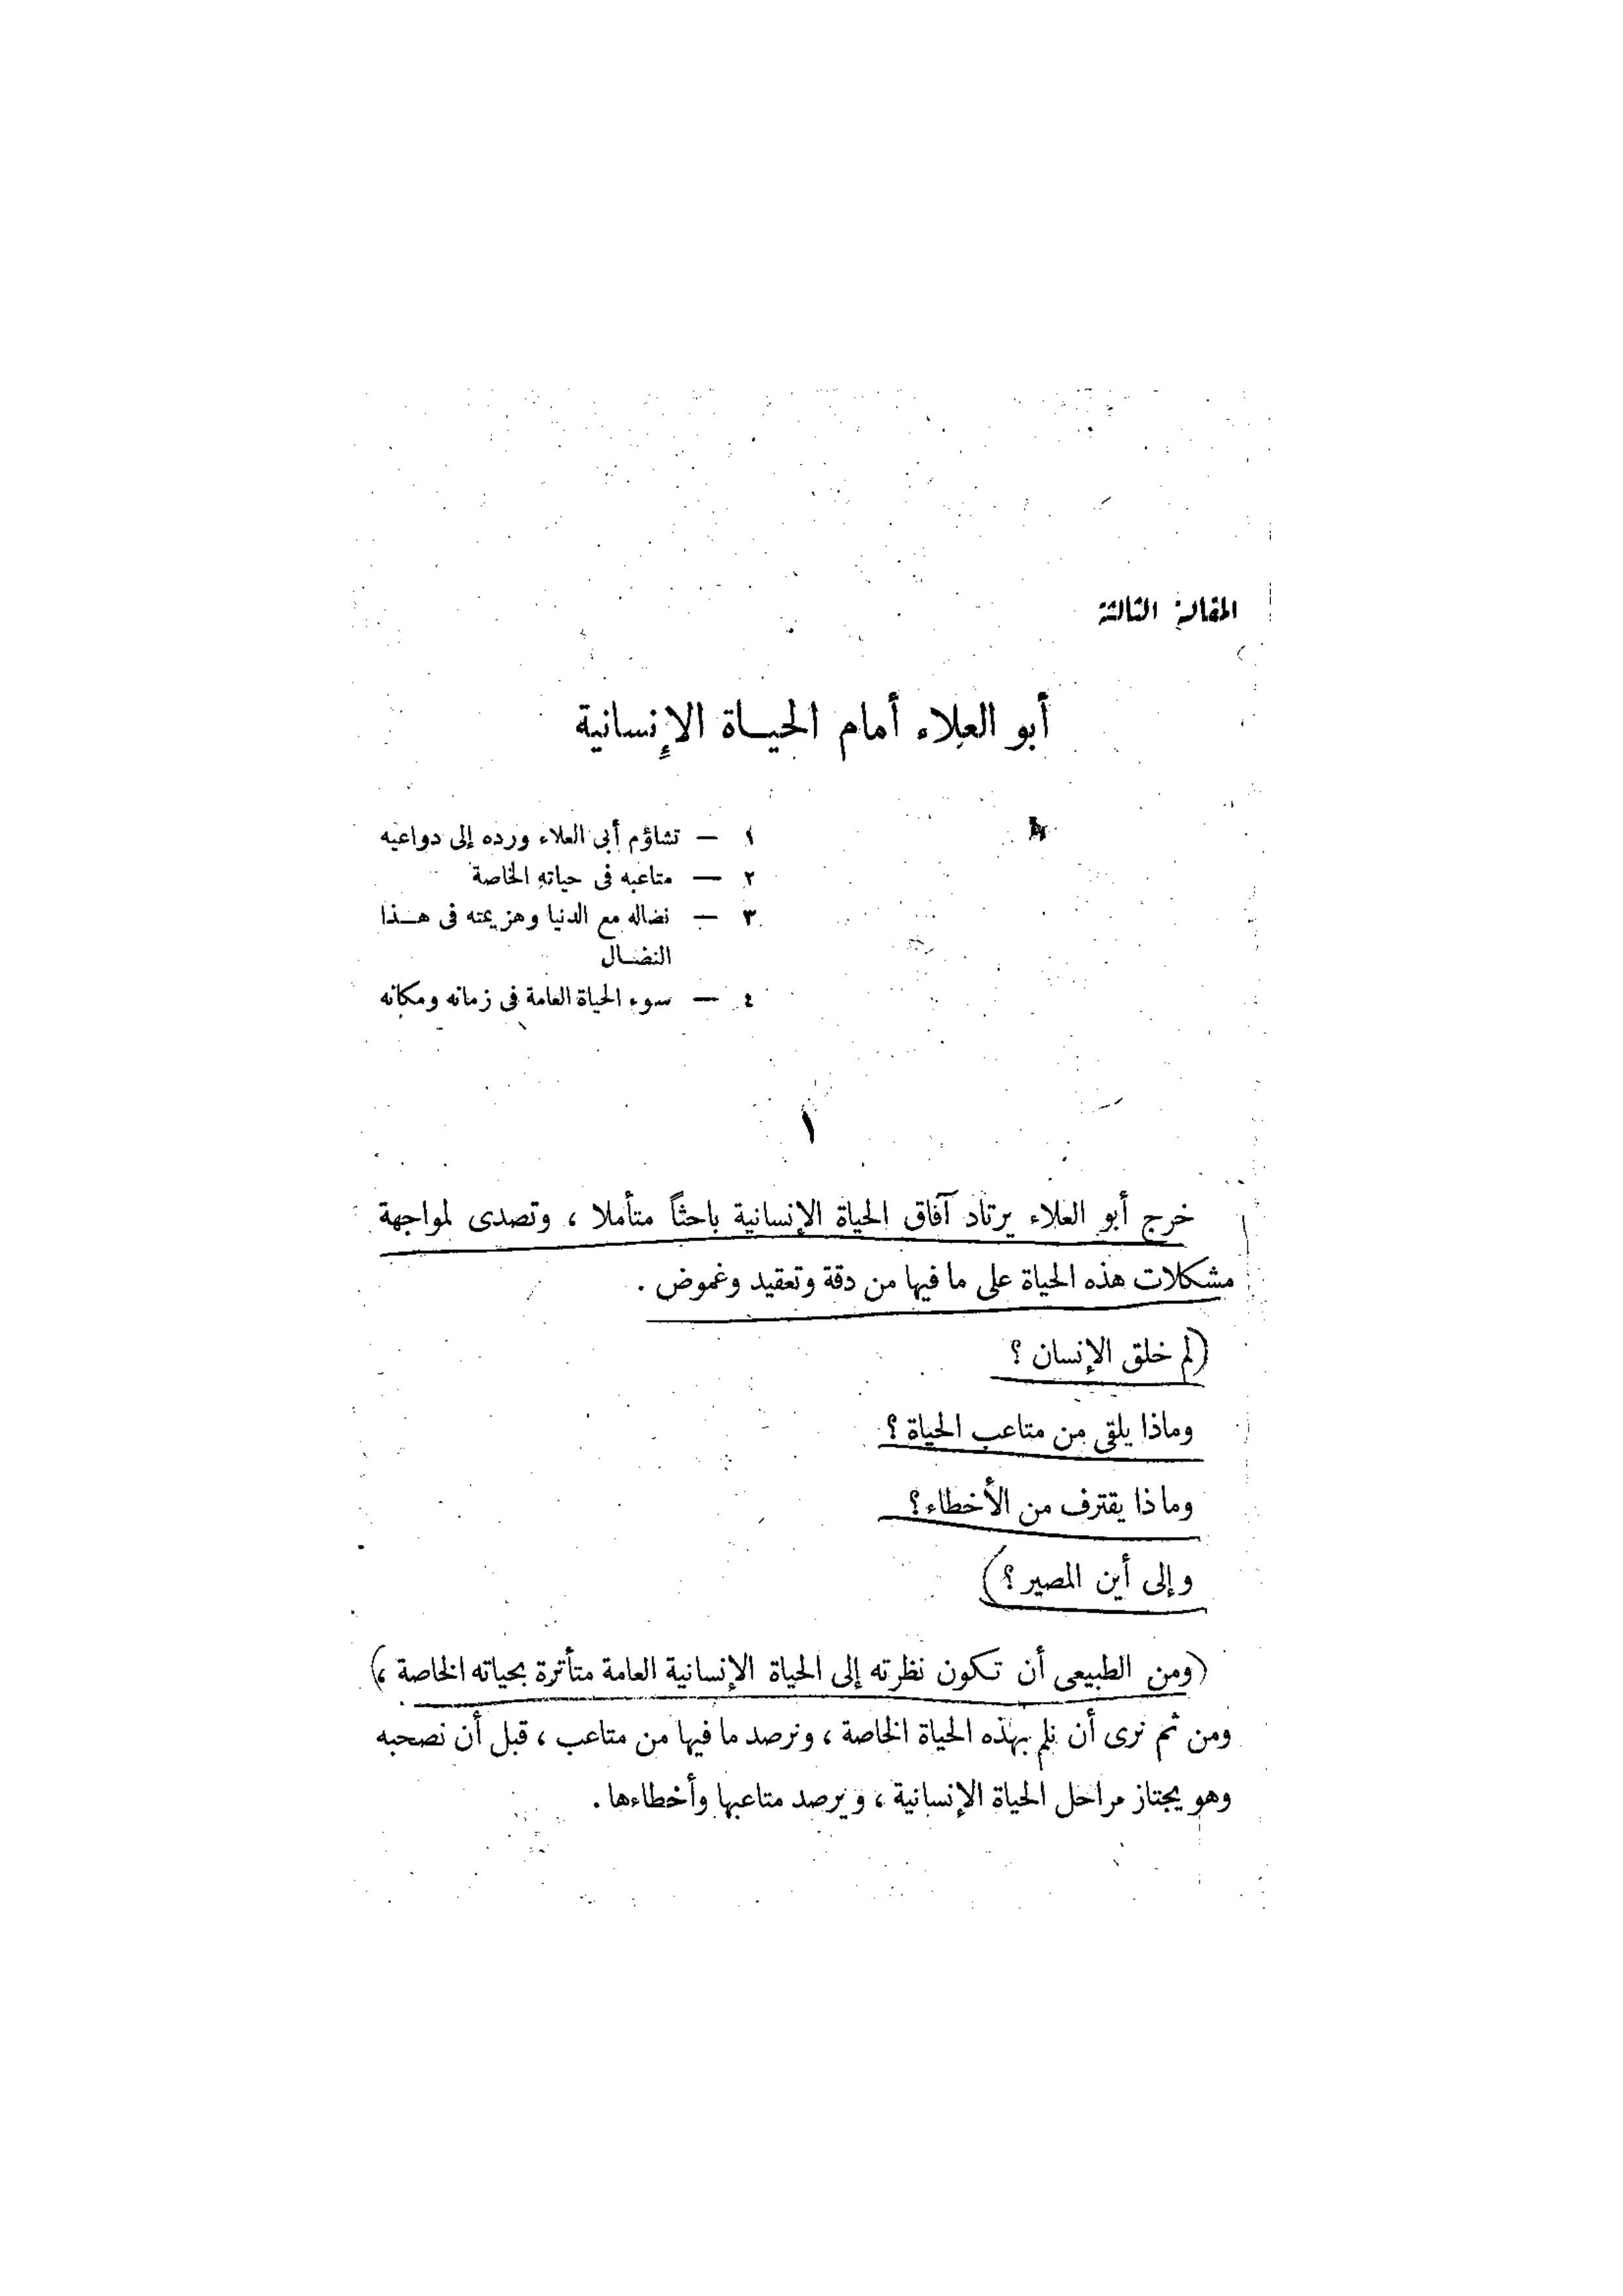 المقالة الثالثة
أبو العلاء أمام الحيـاة الإنسانية
١ — تشاؤم أبى العلاء ورده إلى دواعيه
٢ — متاعبه فى حياته الخاصة
٣ — نضاله مع الدنيا وهزيمته فى هـذا
النضـال
٤ — سوء الحياة العامة فى زمانه ومكانه
١
خرج أبو العلاء يرتاد آفاق الحياة الإنسانية باحثاً متأملا ، وتصدى لمواجهة
مشكلات هذه الحياة على ما فيها من دقة وتعقيد وغموض .
(لم خلق الإنسان ؟
وماذا يلقى من متاعب الحياة ؟
وماذا يقترف من الأخطاء؟
وإلى أين المصير ؟)
(ومن الطبيعى أن تكون نظرته إلى الحياة الإنسانية العامة متأثرة بحياته الخاصة ،)
ومن ثم نرى أن نلم بهذه الحياة الخاصة ، ونرصد ما فيها من متاعب ، قبل أن نصحبه
وهو يجتاز مراحل الحياة الإنسانية ، ويرصد متاعبها وأخطاءها .